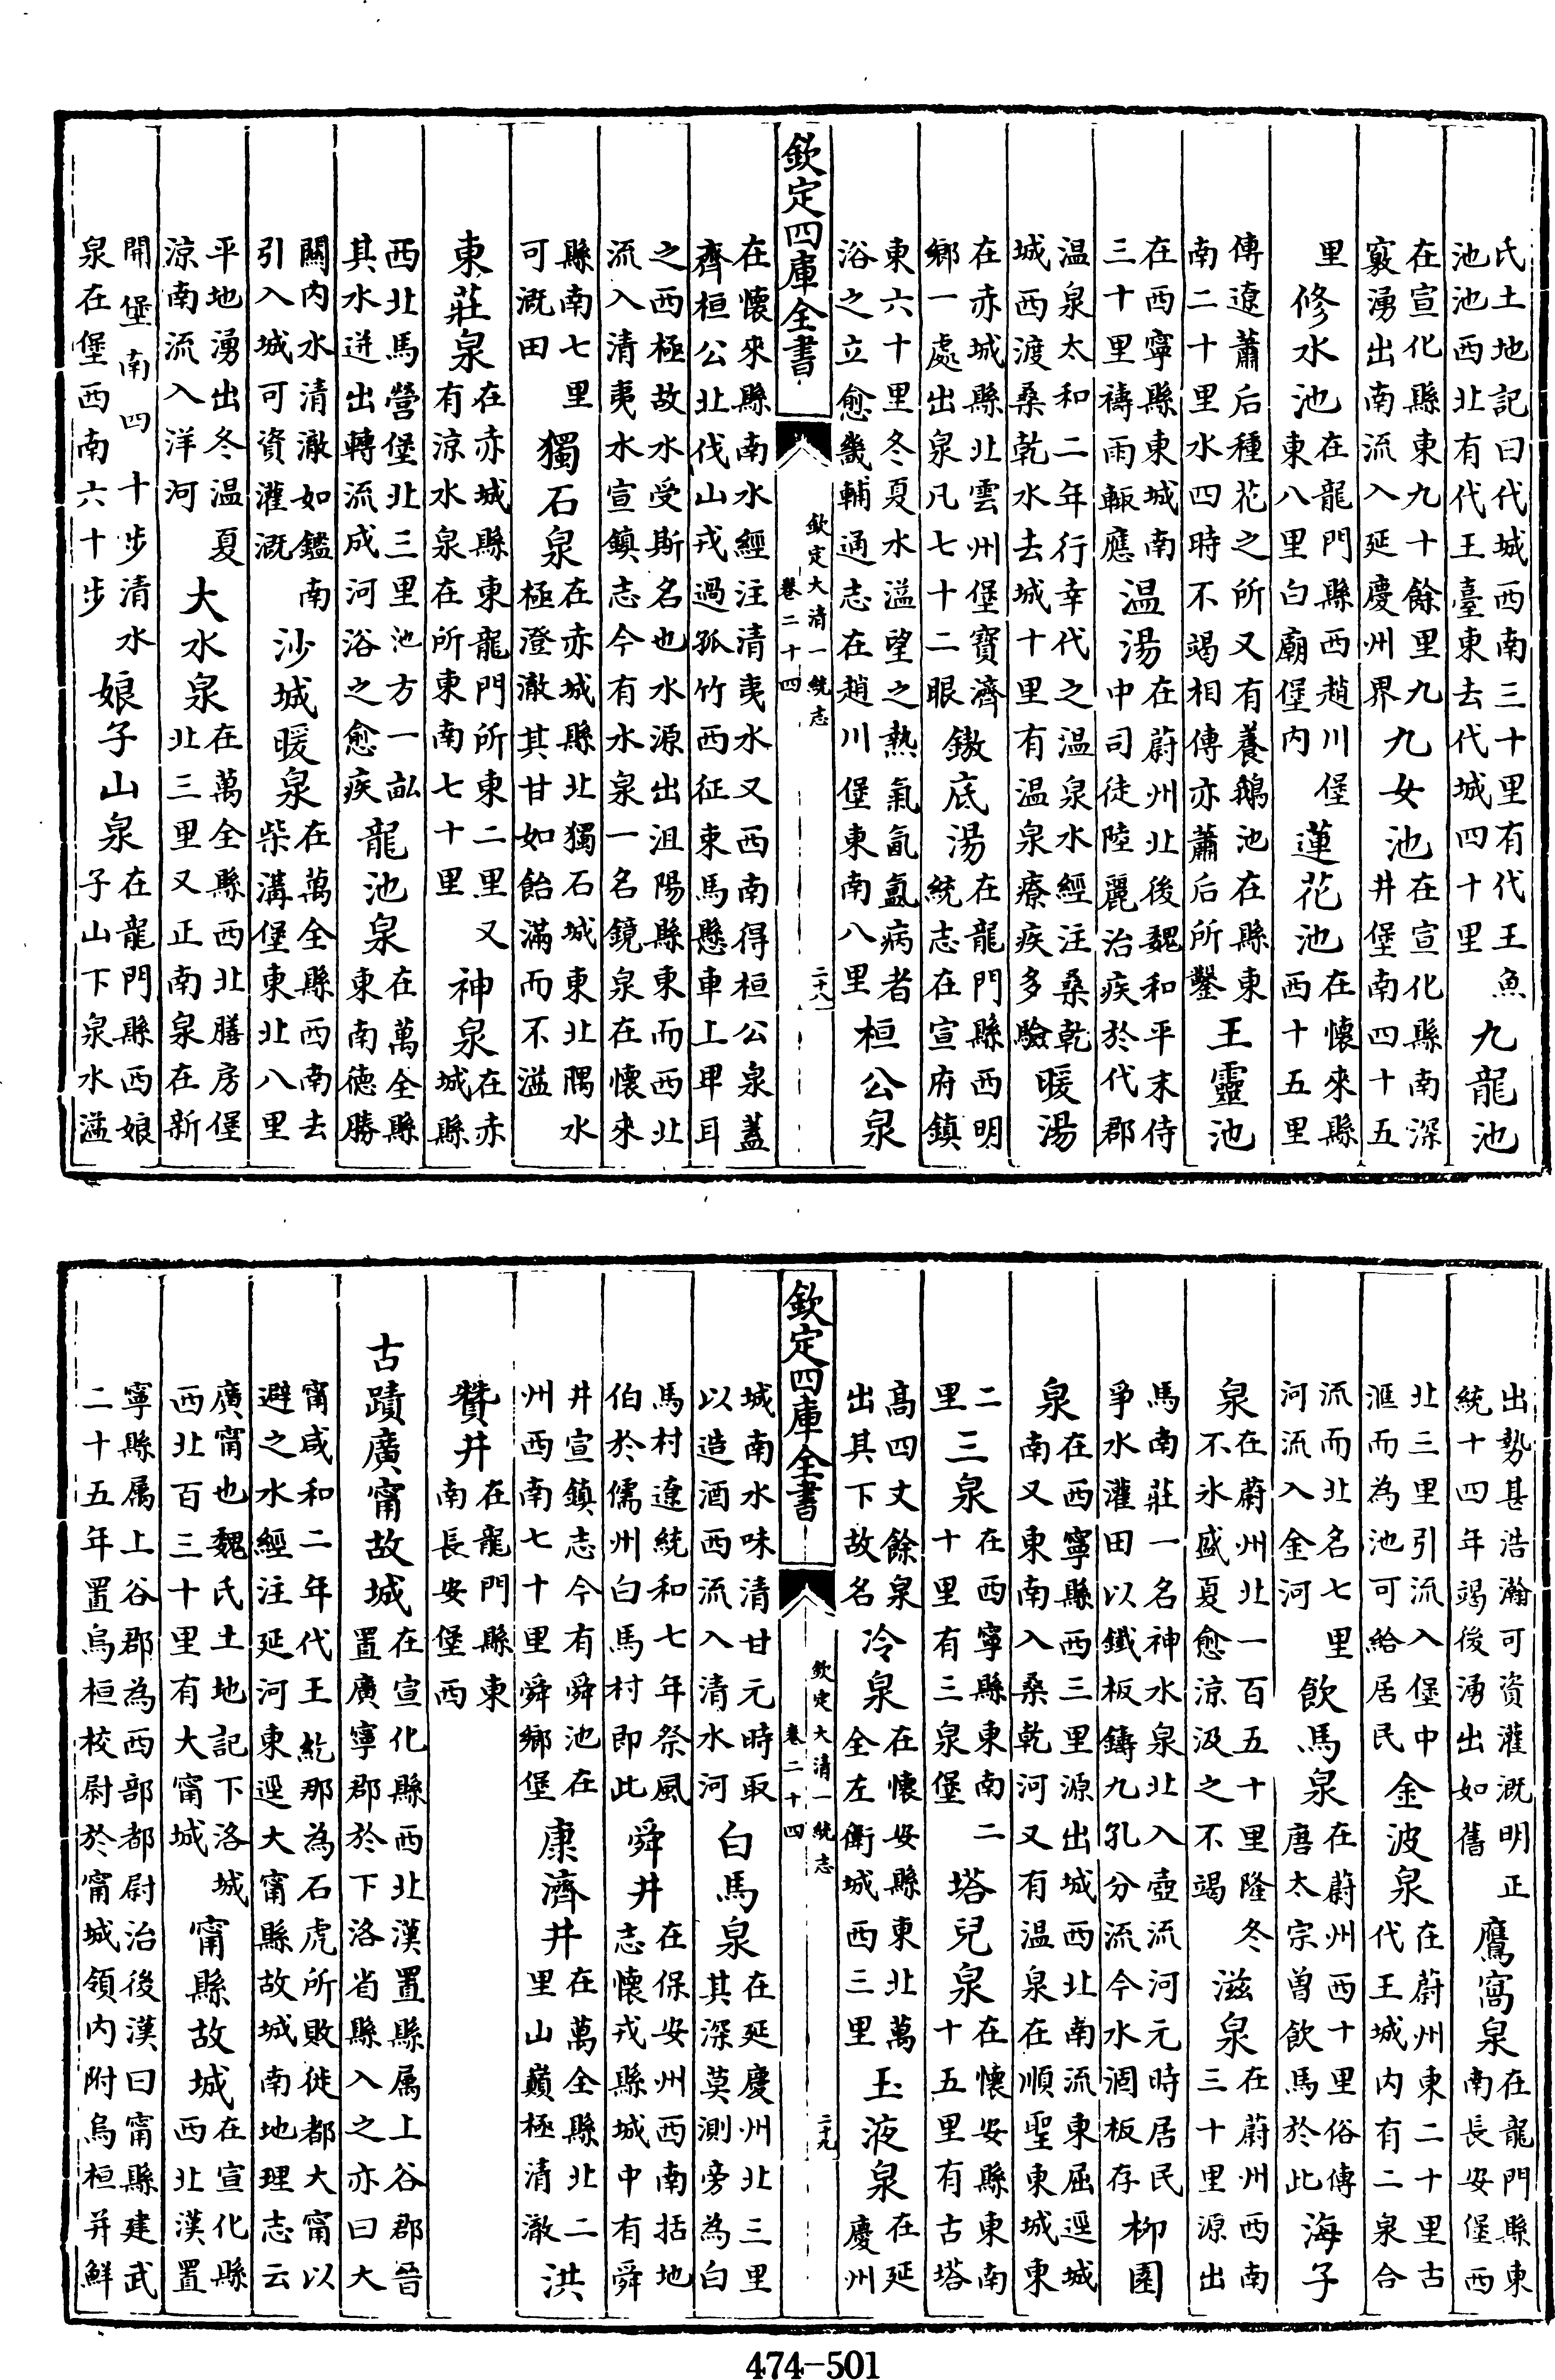 氏土地記曰代城西南三十里有代王魚
池池西北有代王臺東去代城四十里 九龍池
在宣化縣東九十餘里九
竅湧出南流入延慶州界 九女池 在宣化縣南深
井堡南四十五
里 修水池 在龍門縣西趙川堡
東八里白廟堡內 蓮花池 在懷來縣
西十五里
傳遼蕭后種花之所又有養鵝池在縣東
南二十里水四時不竭相傳亦蕭后所鑿 王靈池
在西寧縣東城南
三十里禱雨輙應 温湯 在蔚州北後魏和平末侍
中司徒陸麗治疾於代郡
温泉太和二年行幸代之温泉水經注桑乾
城西渡桑乾水去城十里有温泉療疾多驗 暖湯
在赤城縣北雲州堡寶濟
鄉一處出泉凡七十二眼 底湯 在龍門縣西明
統志在宣府鎮
東六十里冬夏水溢望之熱氣氤氳病者
浴之立愈畿輔通志在趙川堡東南八里 桓公泉
欽定四庫全書
欽定大清一統志
卷二十四
二十八
在懷來縣南水經注清夷水又西南得桓公泉蓋
齊桓公北伐山戎過孤竹西征束馬懸車上卑耳
之西極故水受斯名也水源出沮陽縣東而西北
流入清夷水宣鎮志今有水泉一名鏡泉在懷來
縣南七里
可溉田 獨石泉 在赤城縣北獨石城東北隅水
極澄澈其甘如飴滿而不溢
東莊泉 在赤城縣東龍門所東二里又
有涼水泉在所東南七十里 神泉 在赤
城縣
西北馬營堡北三里池方一畝
其水迸出轉流成河浴之愈疾 龍池泉 在萬全縣
東南德勝
關內水清澈如鑑南
引入城可資灌溉 沙城暖泉 在萬全縣西南去
柴溝堡東北八里
平地湧出冬温夏
涼南流入洋河 大水泉 在萬全縣西北膳房堡
北三里又正南泉在新
開堡南四十步清水
泉在堡西南六十步 娘子山泉 在龍門縣西娘
子山下泉水溢
出勢甚浩瀚可資灌溉明正
統十四年竭後湧出如舊 鷹窩泉 在龍門縣東
南長安堡西
北三里引流入堡中
滙而為池可給居民 金波泉 在蔚州東二十里古
代王城内有二泉合
流而北名七里
河流入金河 飲馬泉 在蔚州西十里俗傳
唐太宗曾飲馬於此 海子
泉 在蔚州北一百五十里隆冬
不氷盛夏愈涼汲之不竭 滋泉 在蔚州西南
三十里源出
馬南莊一名神水泉北入壺流河元時居民
爭水灌田以鐵板鑄九孔分流今水涸板存 柳園
泉 在西寧縣西三里源出城西北南流東屈逕城
南又東南入桑乾河又有温泉在順聖東城東
二
里 三泉 在西寧縣東南二
十里有三泉堡 塔兒泉 在懷安縣東南
十五里有古塔
高四丈餘泉
出其下故名 冷泉 在懷安縣東北萬
全左衛城西三里 玉液泉 在延
慶州
欽定四庫全書
欽定大清一統志
卷二十四
二十九
城南水味清甘元時取
以造酒西流入清水河 白馬泉 在延慶州北三里
其深莫測旁為白
馬村遼統和七年祭風
伯於儒州白馬村即此 舜井 在保安州西南括地
志懷戎縣城中有舜
井宣鎮志今有舜池在
州西南七十里舜鄉堡 康濟井 在萬全縣北二
里山巔極清澈 洪
贊井 在龍門縣東
南長安堡西
古蹟廣甯故城 在宣化縣西北漢置縣属上谷郡晉
置廣寧郡於下洛省縣入之亦曰大
甯咸和二年代王紇那為石虎所敗徙都大甯以
避之水經注延河東逕大甯縣故城南地理志云
廣甯也魏氏土地記下洛城
西北百三十里有大甯城 甯縣故城 在宣化縣
西北漢置
寧縣属上谷郡為西部都尉治後漢曰甯縣建武
二十五年置烏桓校尉於甯城領内附烏桓并鮮
474-501